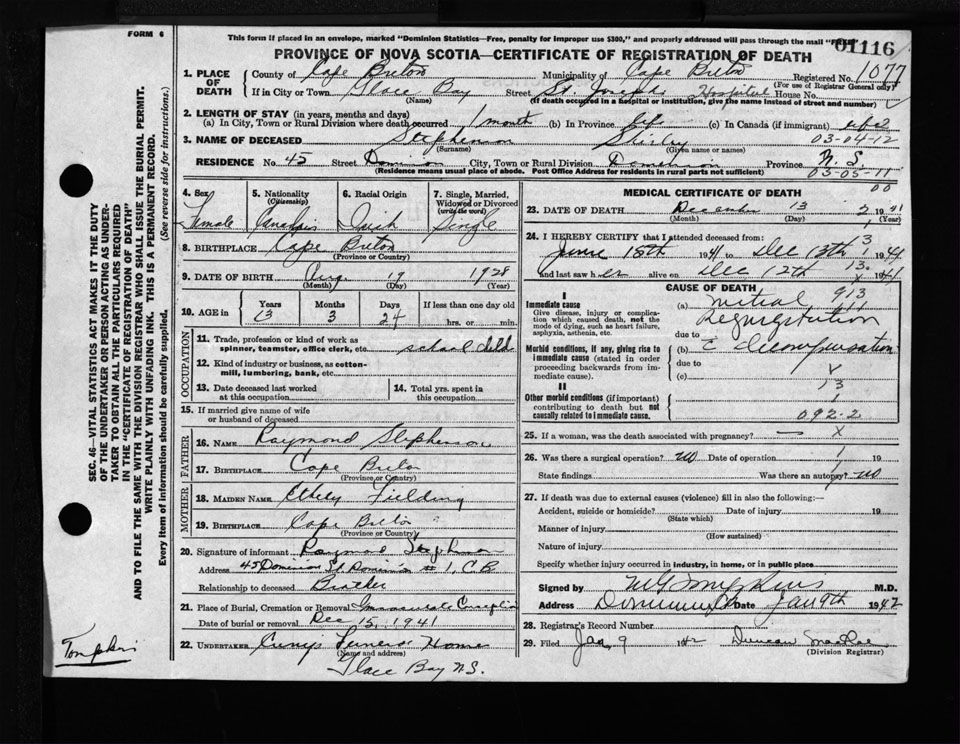 FORM 6
This form if placed in an envelope, marked "Dominion Statistics—Free, penalty for improper use $300," and properly addressed will pass through the mail "Free"
01116
PROVINCE OF NOVA SCOTIA—CERTIFICATE OF REGISTRATION OF DEATH
1. PLACE OF DEATH County of Cape Breton Municipality of Cape Breton Registered No. 1077
(For use of Registrar General only)
If in City or Town Glace Bay Street St. Josephs Hospital House No.
(Name) (If death occurred in a hospital or institution, give the name instead of street and number)
2. LENGTH OF STAY (in years, months and days)
(a) In City, Town or Rural Division where death occurred 1 month (b) In Province life (c) In Canada (if immigrant)
3. NAME OF DECEASED Stephenson Shirley 03-04-12
(Surname) (Given name or names)
RESIDENCE No. 45 Street Dominion City, Town or Rural Division Dominion Province N. S.
(Residence means usual place of abode. Post Office Address for residents in rural parts not sufficient) 03-05-11
00
4. Sex Female
5. Nationality (Citizenship) Canadian
6. Racial Origin Irish
7. Single, Married, Widowed or Divorced (write the word) Single
8. BIRTHPLACE Cape Breton
(Province or Country)
9. DATE OF BIRTH Aug 19 1928
(Month) (Day) (Year)
10. AGE in Years 13 Months 3 Days 24 If less than one day old hrs. or min.
OCCUPATION
11. Trade, profession or kind of work as spinner, teamster, office clerk, etc. school child
12. Kind of industry or business, as cotton-mill, lumbering, bank, etc.
13. Date deceased last worked at this occupation
14. Total yrs. spent in this occupation
15. If married give name of wife or husband of deceased
FATHER
16. NAME Raymond Stephenson
17. BIRTHPLACE Cape Breton
(Province or Country)
MOTHER
18. MAIDEN NAME Fielding
19. BIRTHPLACE Cape Breton
(Province or Country)
20. Signature of informant Raymond Stephenson
Address 45 Dominion St Dominion # 1, C.B.
Relationship to deceased Brother
21. Place of Burial, Cremation or Removal Immaculate Conception
Date of burial or removal Dec 15, 1941
22. UNDERTAKER Funeral Home
Glace Bay N.S.
MEDICAL CERTIFICATE OF DEATH
23. DATE OF DEATH December 13 1941
(Month) (Day) (Year)
24. I HEREBY CERTIFY that I attended deceased from:
June 15th 1941 to Dec 13th 1941
and last saw her alive on Dec 12th 1941
CAUSE OF DEATH
I
Immediate cause
Give disease, injury or complication which caused death, not the mode of dying, such as heart failure, asphyxia, asthenia, etc.
(a) Mitral
Regurgitation
due to
Morbid conditions, if any, giving rise to immediate cause (stated in order proceeding backwards from immediate cause).
(b) c Decompensation
due to
(c)
II
Other morbid conditions (if important) contributing to death but not causally related to immediate cause.
092-2
25. If a woman, was the death associated with pregnancy? — X
26. Was there a surgical operation? no Date of operation 19
State findings Was there an autopsy? no
27. If death was due to external causes (violence) fill in also the following:—
Accident, suicide or homicide? Date of injury 19
(State which)
Manner of injury
(How sustained)
Nature of injury
Specify whether injury occurred in industry, in home, or in public place
Signed by Tompkins M.D.
Address Dominion Date Jan 9th 1942
28. Registrar's Record Number
29. Filed Jan 9 1942 Duncan MacRae
(Division Registrar)
SEC. 46—VITAL STATISTICS ACT MAKES IT THE DUTY
OF THE UNDERTAKER OR PERSON ACTING AS UNDER-
TAKER TO OBTAIN ALL THE PARTICULARS REQUIRED
IN THE "CERTIFICATE OF REGISTRATION OF DEATH"
AND TO FILE THE SAME WITH THE DIVISION REGISTRAR WHO SHALL ISSUE THE BURIAL PERMIT.
WRITE PLAINLY WITH UNFADING INK. THIS IS A PERMANENT RECORD.
Every item of information should be carefully supplied. (See reverse side for instructions.)
Tompkins